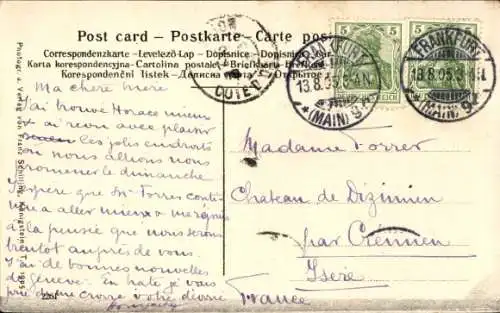 Post card – Postkarte – Carte pos
Correspondenzkarte – Levelező-Lap – Dopisnice – Dopisnica
Karta korespondencyjna – Cartolina postale – Briefkaart – Brefkort
Korespondenční listek – Дописна карта – Открытое
Photogr. u. Verlag von Franz Schilling, Königstein i. T. 1905
2261
COTE D
5
5
REICH
FRANKFURT
13.8.05.
(MAIN) 9
FRANKFURT
13.8.05.3
(MAIN) 9
Ma chère mère
J'ai trouvé Horace mieux
et ai revu avec plaisir
ces jolis endroits
où nous allions nous
promener le dimanche
J'espère que Mr Forrer conti-
nue à aller mieux
à la pensée que nous serons
bientôt auprès de vous.
J'ai de bonnes nouvelles
de Genève. En hâte je vous
prie de me croire votre
Madame Forrer
Château de Dizimieu
par Crémieu
Isère
France